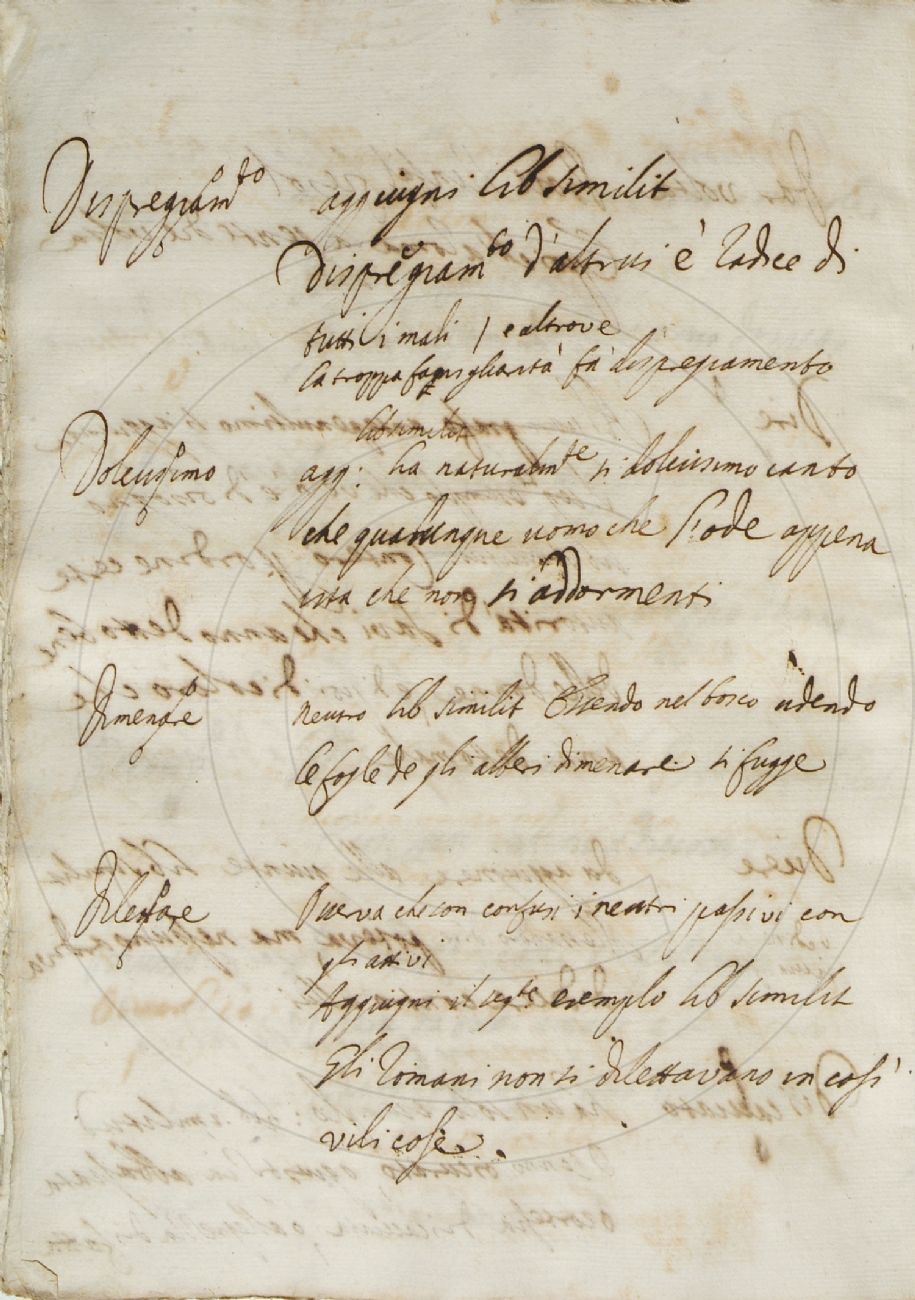 Dispregiamto aggiugni lib similit
Dispregiamto d'altrui è radice di
tutti i mali / e altrove
la troppa famigliarità fà dispregiamento
lib similit
Dolcissimo agg: ha naturalmte si dolcissimo canto
che qualunque uomo che l'ode appena
sta che non si addormenti
Dimenare neutro lib similit Essendo nel bosco udendo
le foglie de gli alberi dimenare si fugge
Dilettare Osserva che son confusi i neutri passivi con
gli attivi
Aggiugni il segte esempio lib similit
Gli Romani non si dilettavano in così
vili cose.